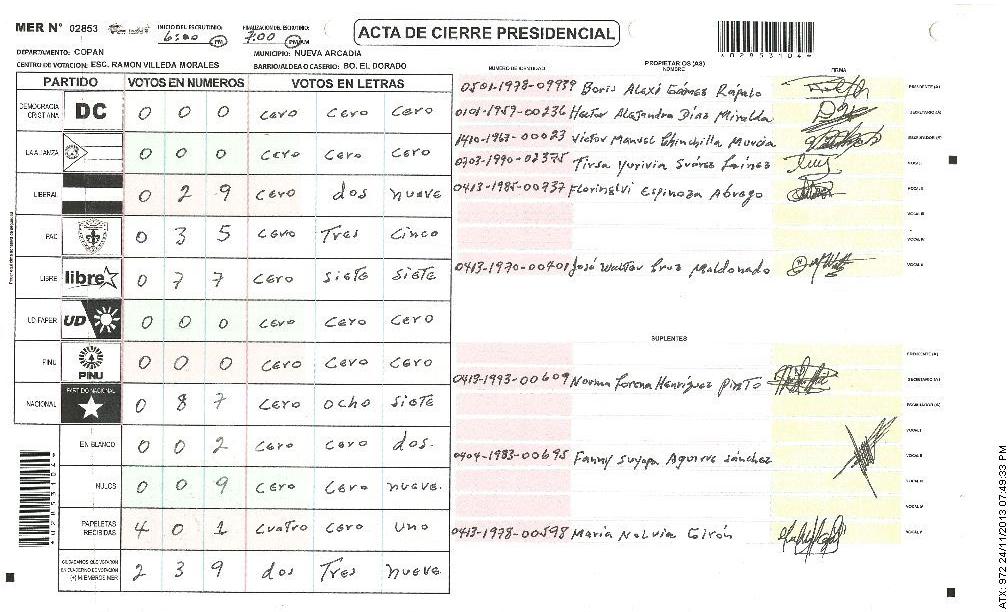 MER N° 02853 INICIO DEL ESCRUTINIO: 6:00 PM FINALIZACION DEL ESCRUTINIO: 7:00 PM
ACTA DE CIERRE PRESIDENCIAL
*02853104*
DEPARTAMENTO: COPAN MUNICIPIO: NUEVA ARCADIA
CENTRO DE VOTACION: ESC. RAMON VILLEDA MORALES BARRIO/ALDEA O CASERIO: BO. EL DORADO
PARTIDO VOTOS EN NUMEROS VOTOS EN LETRAS
DEMOCRACIA CRISTIANA DC 0 0 0 cero cero cero
LA ALIANZA 0 0 0 cero cero cero
LIBERAL 0 2 9 cero dos nueve
PAC 0 3 5 cero Tres cinco
LIBRE libre 0 7 7 cero siete siete
UD-FAPER UD 0 0 0 cero cero cero
PINU PINU 0 0 0 cero cero cero
NACIONAL PARTIDO NACIONAL 0 8 7 cero ocho siete
EN BLANCO 0 0 2 cero cero dos.
NULOS 0 0 9 cero cero nueve.
PAPELETAS RECIBIDAS 4 0 1 cuatro cero uno
CIUDADANOS QUE VOTARON EN CUADERNO DE VOTACION (+) MIEMBROS MER 2 3 9 dos Tres nueve.
NUMERO DE IDENTIDAD PROPIETARIOS (AS) NOMBRE FIRMA
0501-1978-09939 Boris Alexi Gómez Rapalo PRESIDENTE (A)
0101-1959-00236 Hector Alejandro Díaz Miralda SECRETARIO (A)
1410-1967-00023 Victor Manuel Chinchilla Murcia ESCRUTADOR (A)
0703-1990-02375 Tirsa Yurivia Suárez Laínez VOCAL I
0413-1985-00737 Florinelvi Espinoza Abrego VOCAL II
VOCAL III
VOCAL IV
0413-1970-00701 José Walter Cruz Maldonado VOCAL V
SUPLENTES
PRESIDENTE (A)
0413-1993-00609 Norma Lorena Henríquez Pinto SECRETARIO (A)
ESCRUTADOR (A)
VOCAL I
0404-1983-00695 Fanny Suyapa Aguirre Sánchez VOCAL II
VOCAL III
VOCAL IV
0413-1978-00598 Maria Nelvia Girón VOCAL V
*02853104*
ATX: 972 24/11/2013 07:49:33 PM